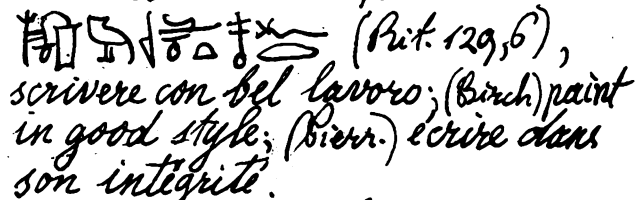 (Rit. 129,6),
scrivere con bel lavoro; (Birch) paint
in good style; (Pierr.) écrire dans
son intégrité.